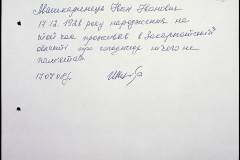 Машкаринець Іван Іванович
17.12.1928 року народження на
той час проживав в Закарпатській
області про голодомор нічого не
пам'ятає.
17.07.08р.